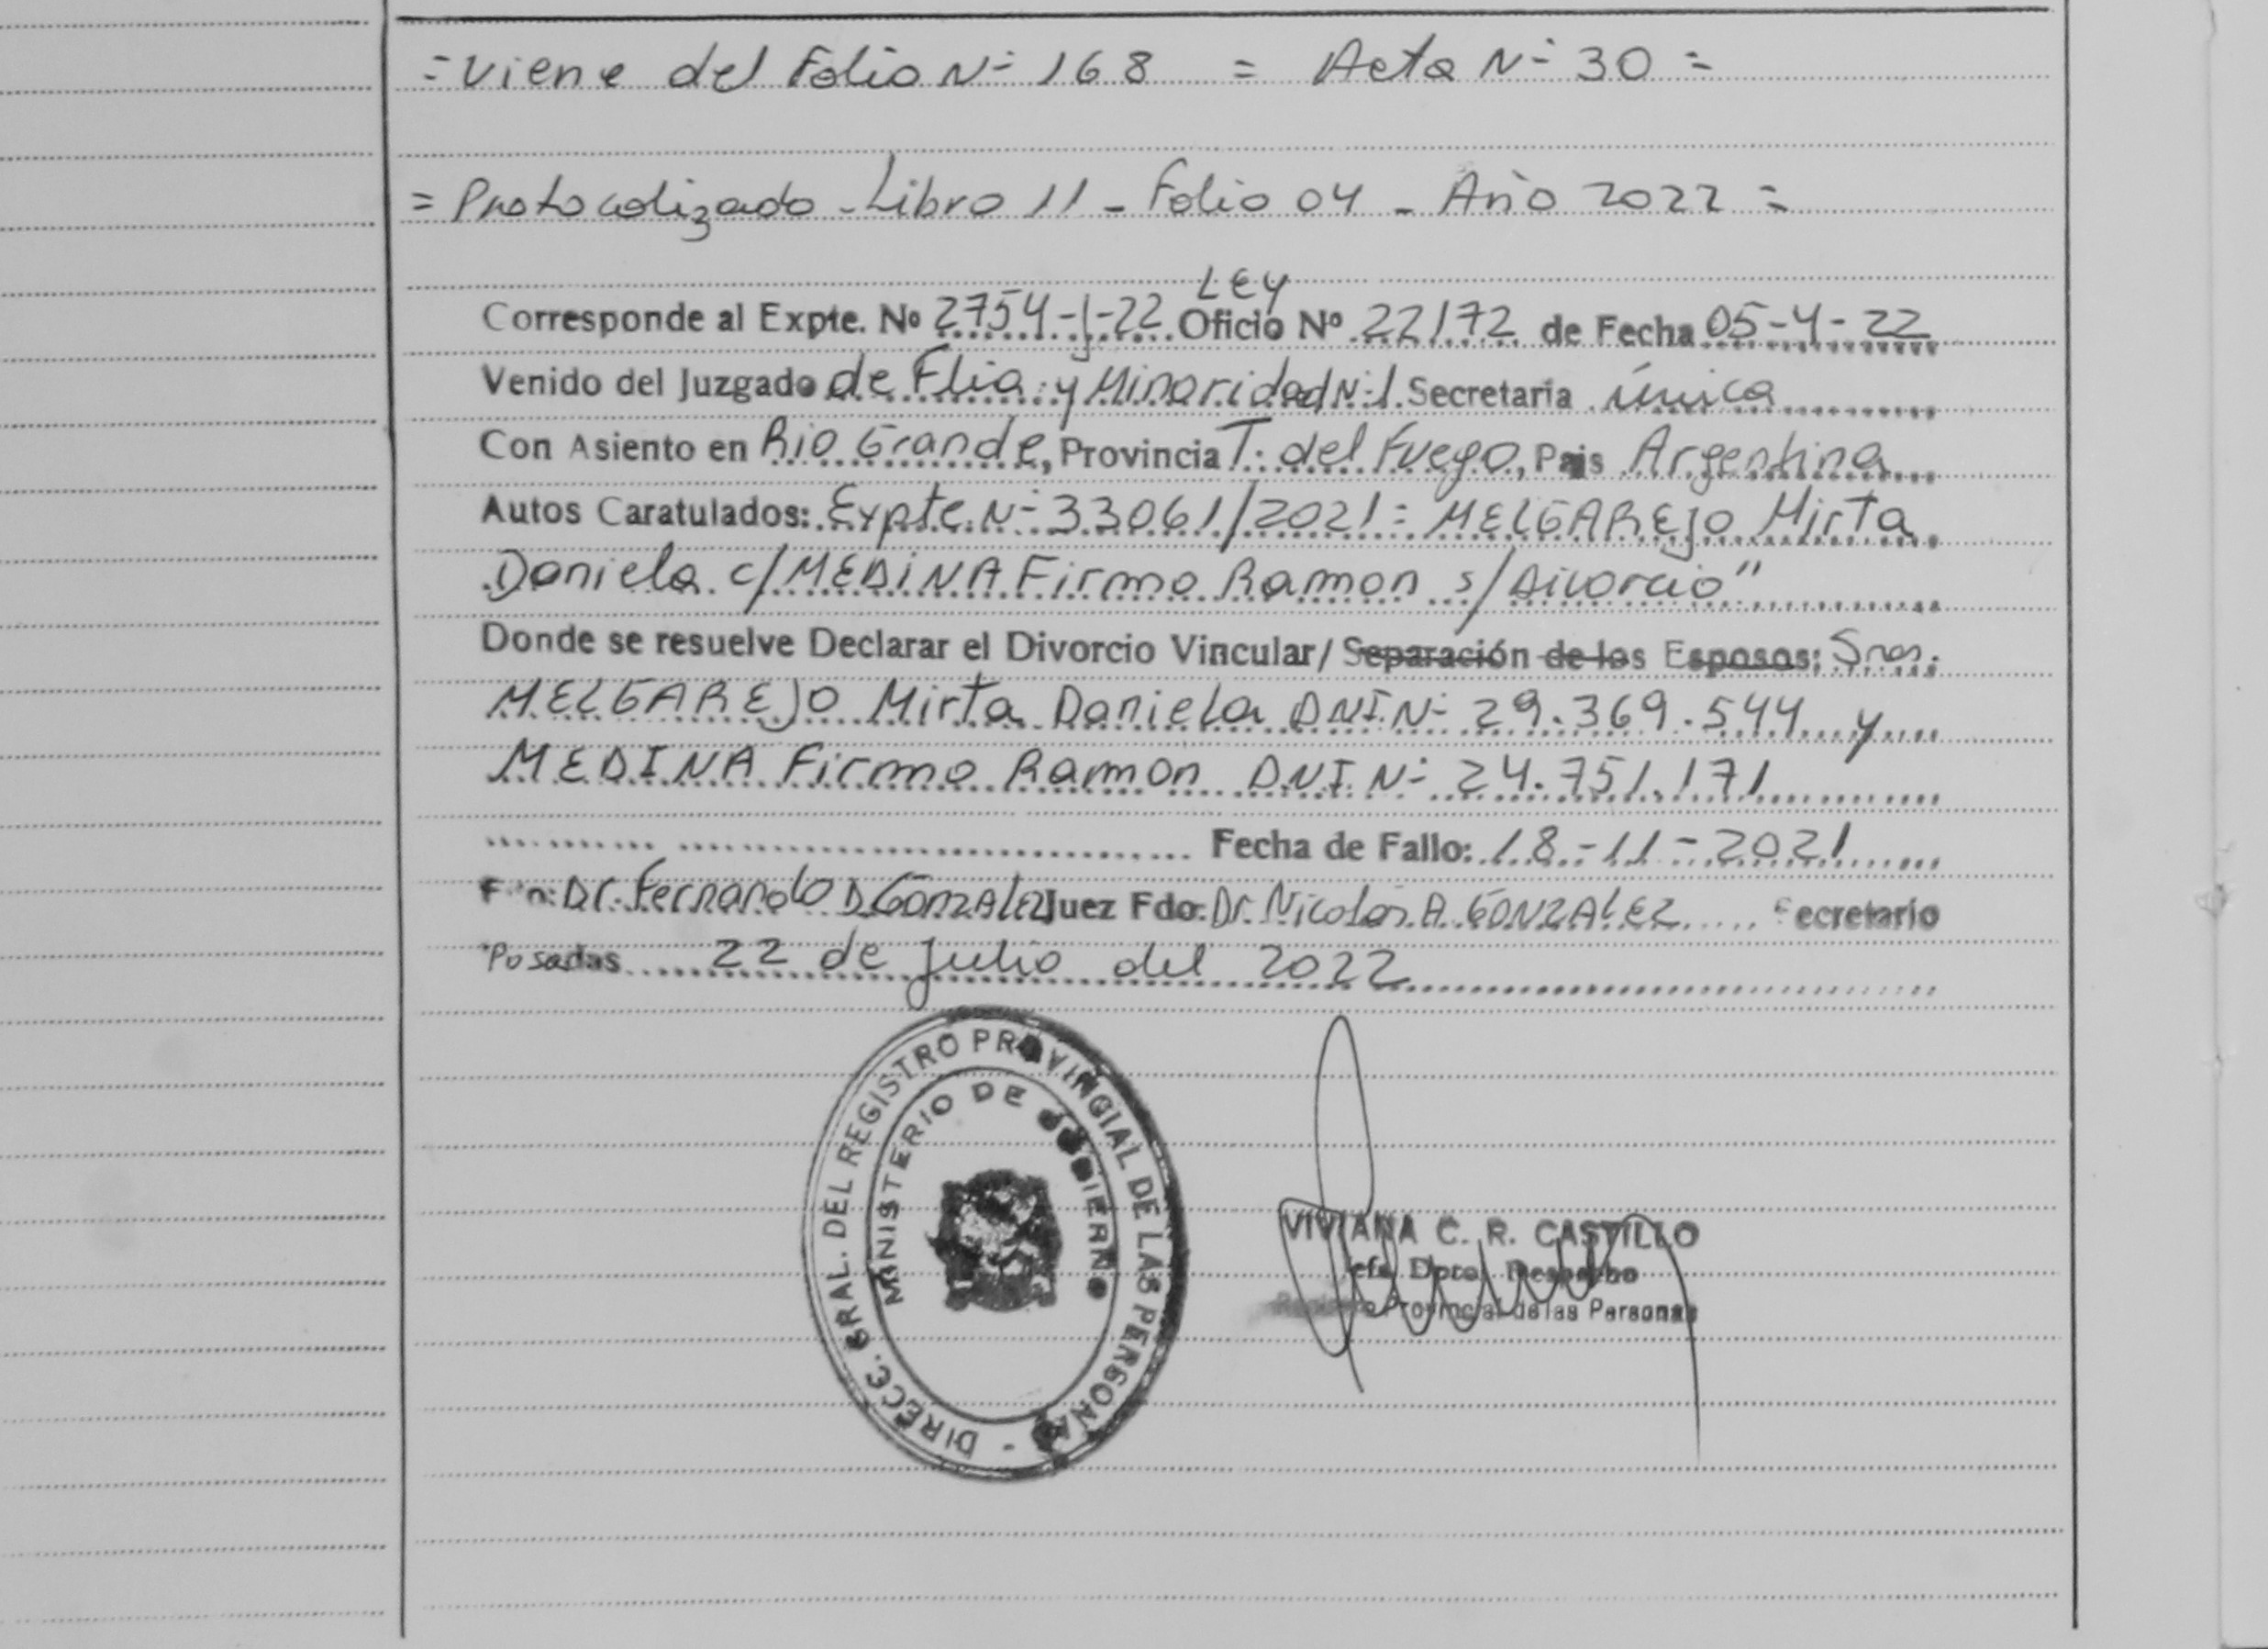 = Viene del Folio Nº 168 = Acta Nº 30 =
= Protocolizado - Libro 11 - Folio 04 - Año 2022 =
LEY
Corresponde al Expte. Nº 2754-J-22 Oficio Nº 22172 de Fecha 05-4-22
Venido del Juzgado de Flia. y Minoridad Nº 1. Secretaria Única
Con Asiento en Rio Grande, Provincia T. del Fuego, Pais Argentina
Autos Caratulados: Expte. Nº 33061/2021 = MELGAREJO Mirta
Daniela c/ MEDINA Firmo Ramon s/ Divorcio"
Donde se resuelve Declarar el Divorcio Vincular/ Separación de los Esposos: Sres.
MELGAREJO Mirta Daniela DNI. Nº 29.369.544 y
MEDINA Firmo Ramon D.N.I. Nº 24.751.171
Fecha de Fallo: 18-11-2021
Dr. Fernando D. GONZALEZ Juez Fdo: Dr. Nicolas A. GONZALEZ Secretario
Posadas 22 de Julio del 2022
DIRECC. GRAL. DEL REGISTRO PROVINCIAL DE LAS PERSONAS -
MINISTERIO DE GOBIERNO
VIVIANA C. R. CASTILLO
Jefe Dpto. Despacho
Registro Provincial de las Personas